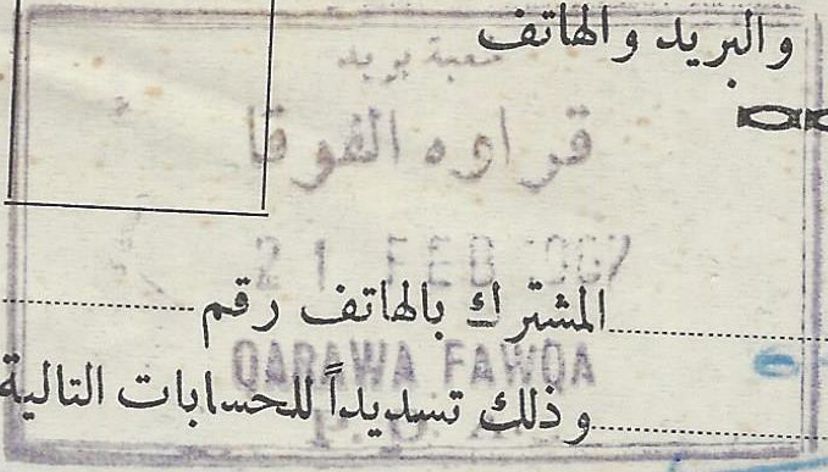 والبريد والهاتف
شعبة بريد
قراوه الفوقا
21 FEB 1967
المشترك بالهاتف رقم
QARAWA FAWQA
وذلك تسديداً للحسابات التالية